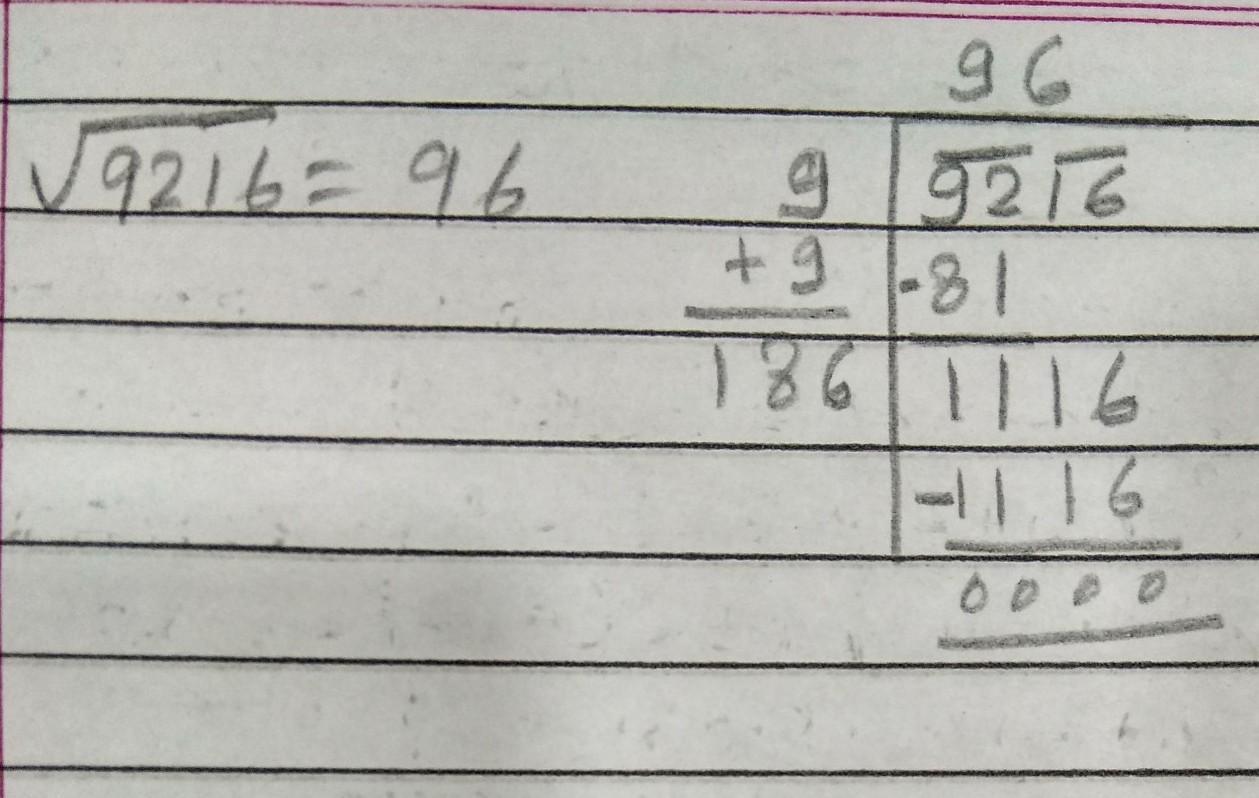 96
√9216 = 96 9 9216
+9 -81
186 1116
-1116
0000